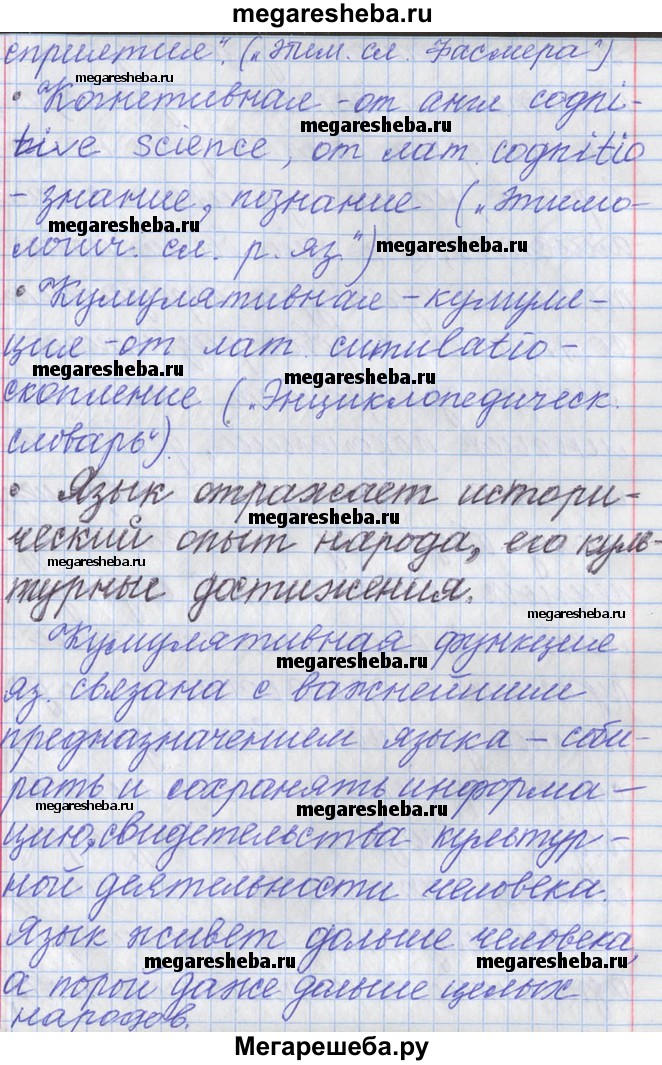 megaresheba.ru
сприятия". („Этим. сл. Фасмера")
megaresheba.ru
• Когнетивная - от англ cogni-
megaresheba.ru
tive science, от лат. cognitio
- знание, познание („Этимо-
megaresheba.ru
логич. сл. р. яз.")
megaresheba.ru
• Кумулятивная - кумуля-
ция - от лат. cumulatio -
megaresheba.ru
megaresheba.ru
скопление („Энциклопедическ.
словарь").
• Язык отражает истори-
megaresheba.ru
ческий опыт народа, его куль-
megaresheba.ru
турные достижения.
megaresheba.ru
Кумулятивная функция
megaresheba.ru
яз. связана с важнейшим
предназначением языка - соби-
рать и сохранять информа-
megaresheba.ru
megaresheba.ru
цию, свидетельства культур-
ной деятельности человека.
Язык живет дольше человека,
megaresheba.ru
megaresheba.ru
а порой даже дольше целых
народов.
Мегарешеба.ру